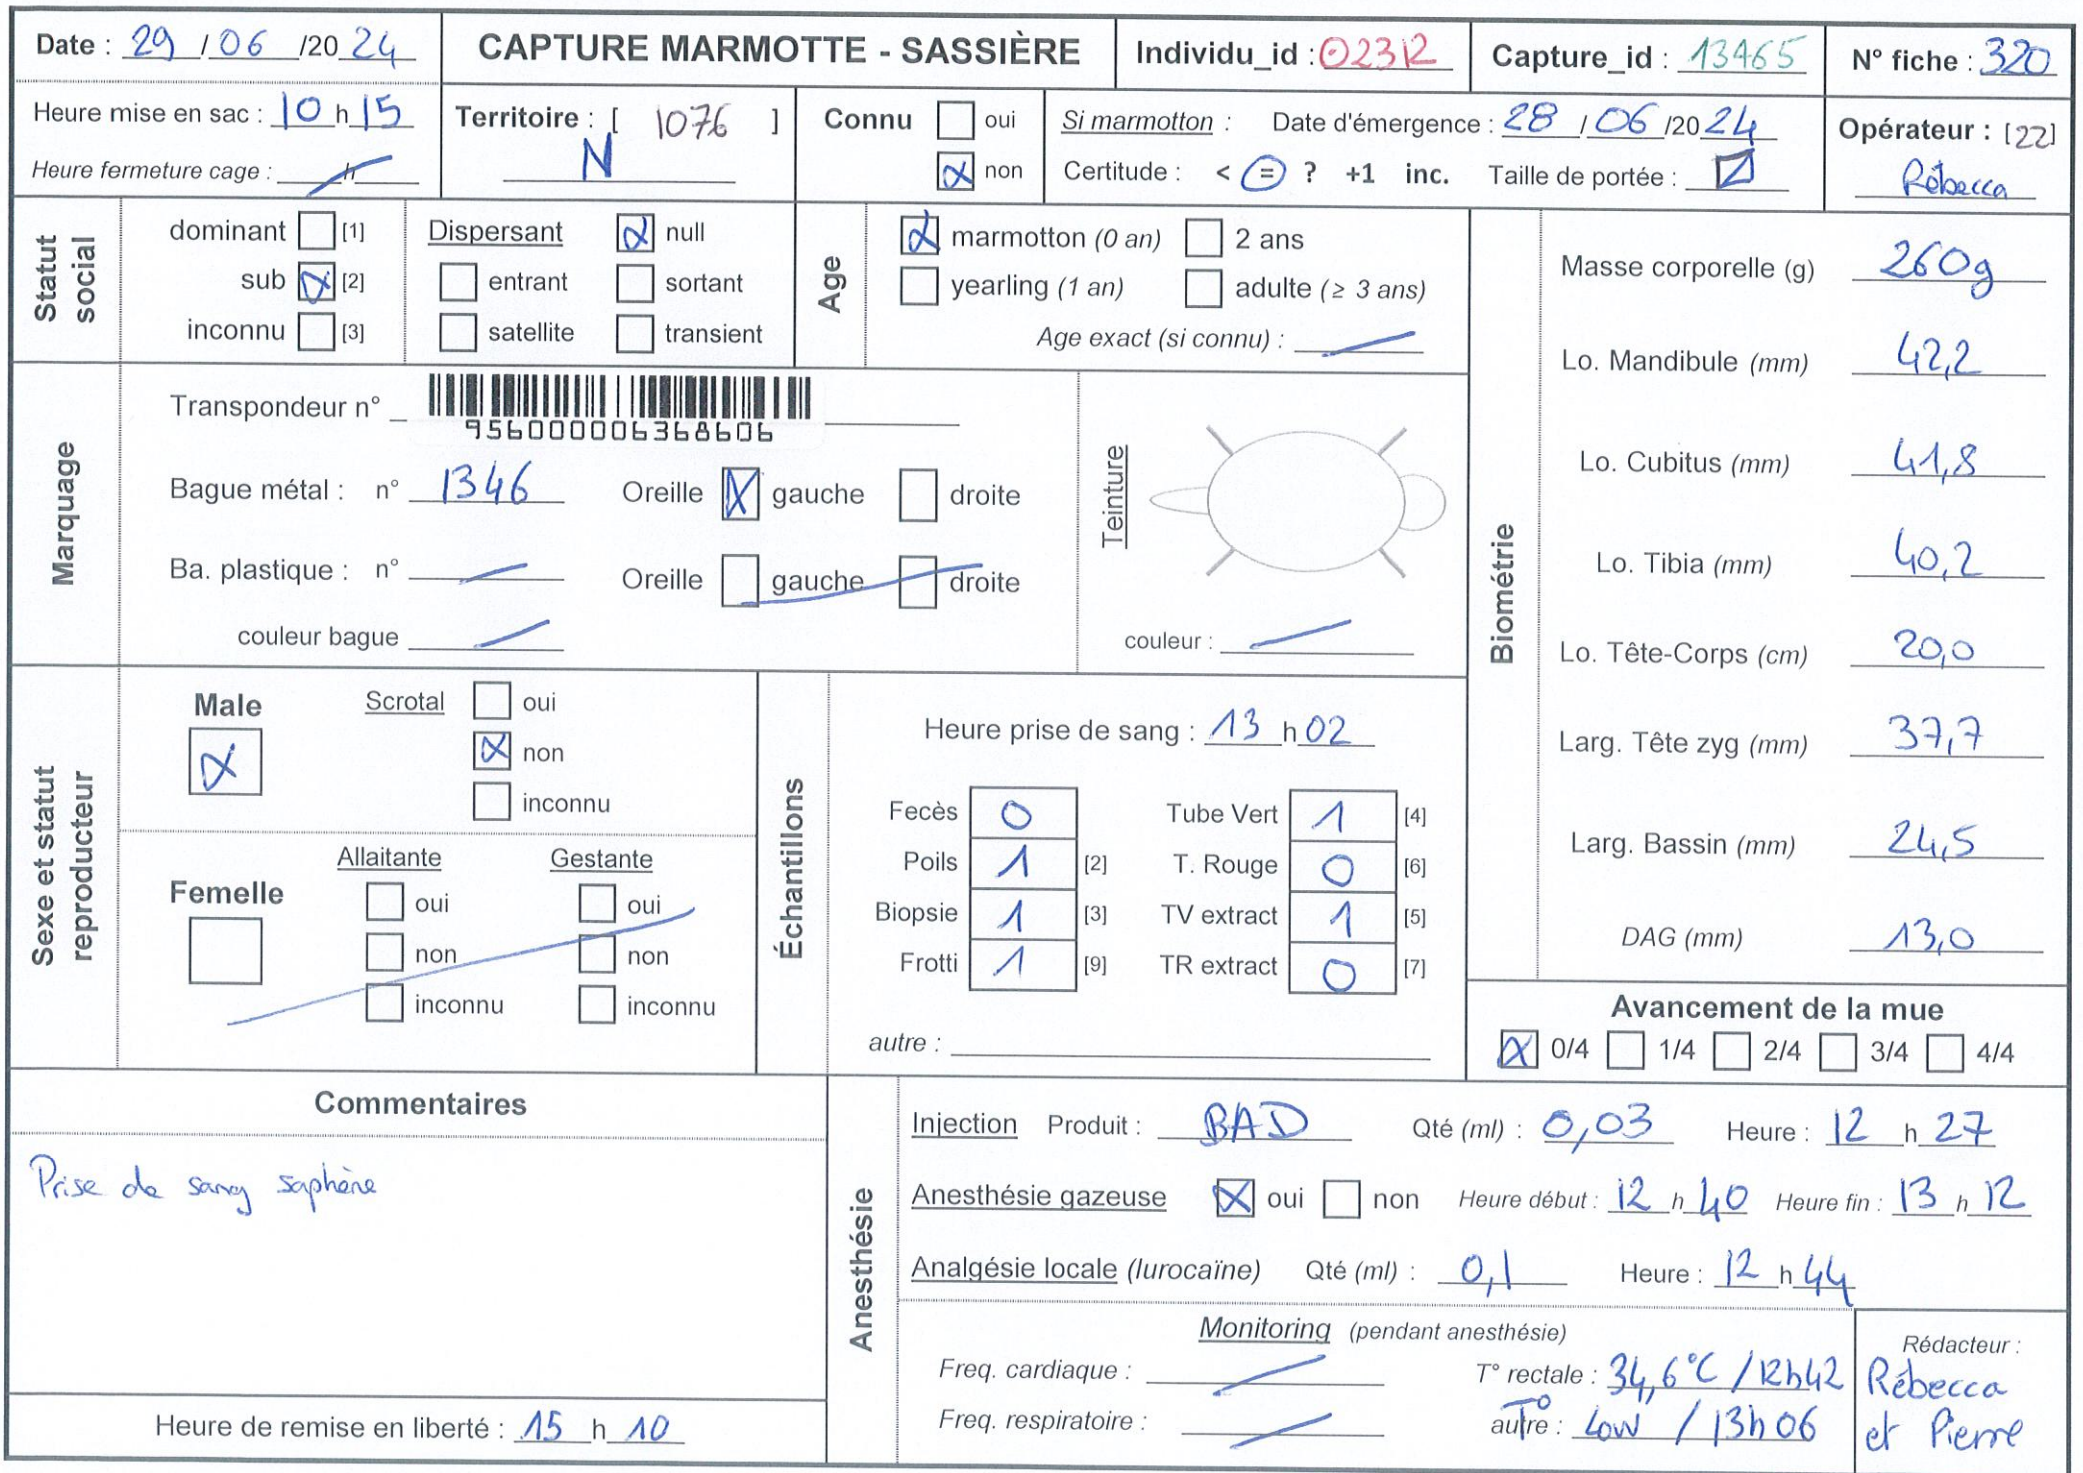 Date : 29 / 06 /20 24 CAPTURE MARMOTTE - SASSIÈRE Individu_id : Capture_id : 13465 N° fiche : 320
Heure mise en sac : 10 h 15 Territoire : [ 1076 ] Connu oui Si marmotton : Date d'émergence : 28 / 06 /20 24 Opérateur : [22]
Heure fermeture cage : h N non Certitude : < = ? +1 inc. Taille de portée : Rébecca
Statut social
dominant [1] Dispersant null
sub [2] entrant sortant
inconnu [3] satellite transient
Age
marmotton (0 an) 2 ans
yearling (1 an) adulte (≥ 3 ans)
Age exact (si connu) :
Marquage
Transpondeur n°
956000006368606
Bague métal : n° 1346 Oreille gauche droite
Ba. plastique : n° Oreille gauche droite
couleur bague
Teinture
couleur :
Biométrie
Masse corporelle (g) 260g
Lo. Mandibule (mm) 42,2
Lo. Cubitus (mm) 41,8
Lo. Tibia (mm) 40,2
Lo. Tête-Corps (cm) 20,0
Larg. Tête zyg (mm) 37,7
Larg. Bassin (mm) 24,5
DAG (mm) 13,0
Sexe et statut reproducteur
Male Scrotal oui
non
inconnu
Allaitante Gestante
Femelle oui oui
non non
inconnu inconnu
Échantillons
Heure prise de sang : 13 h 02
Fecès 0 Tube Vert 1 [4]
Poils 1 [2] T. Rouge 0 [6]
Biopsie 1 [3] TV extract 1 [5]
Frotti 1 [9] TR extract 0 [7]
autre :
Avancement de la mue
0/4 1/4 2/4 3/4 4/4
Commentaires
Prise de sang saphène
Heure de remise en liberté : 15 h 10
Anesthésie
Injection Produit : BAD Qté (ml) : 0,03 Heure : 12 h 27
Anesthésie gazeuse oui non Heure début : 12 h 40 Heure fin : 13 h 12
Analgésie locale (lurocaïne) Qté (ml) : 0,1 Heure : 12 h 44
Monitoring (pendant anesthésie)
Freq. cardiaque : T° rectale : 34,6°C / 12h42
Freq. respiratoire : autre : T° Low / 13h06
Rédacteur :
Rébecca
et Pierre